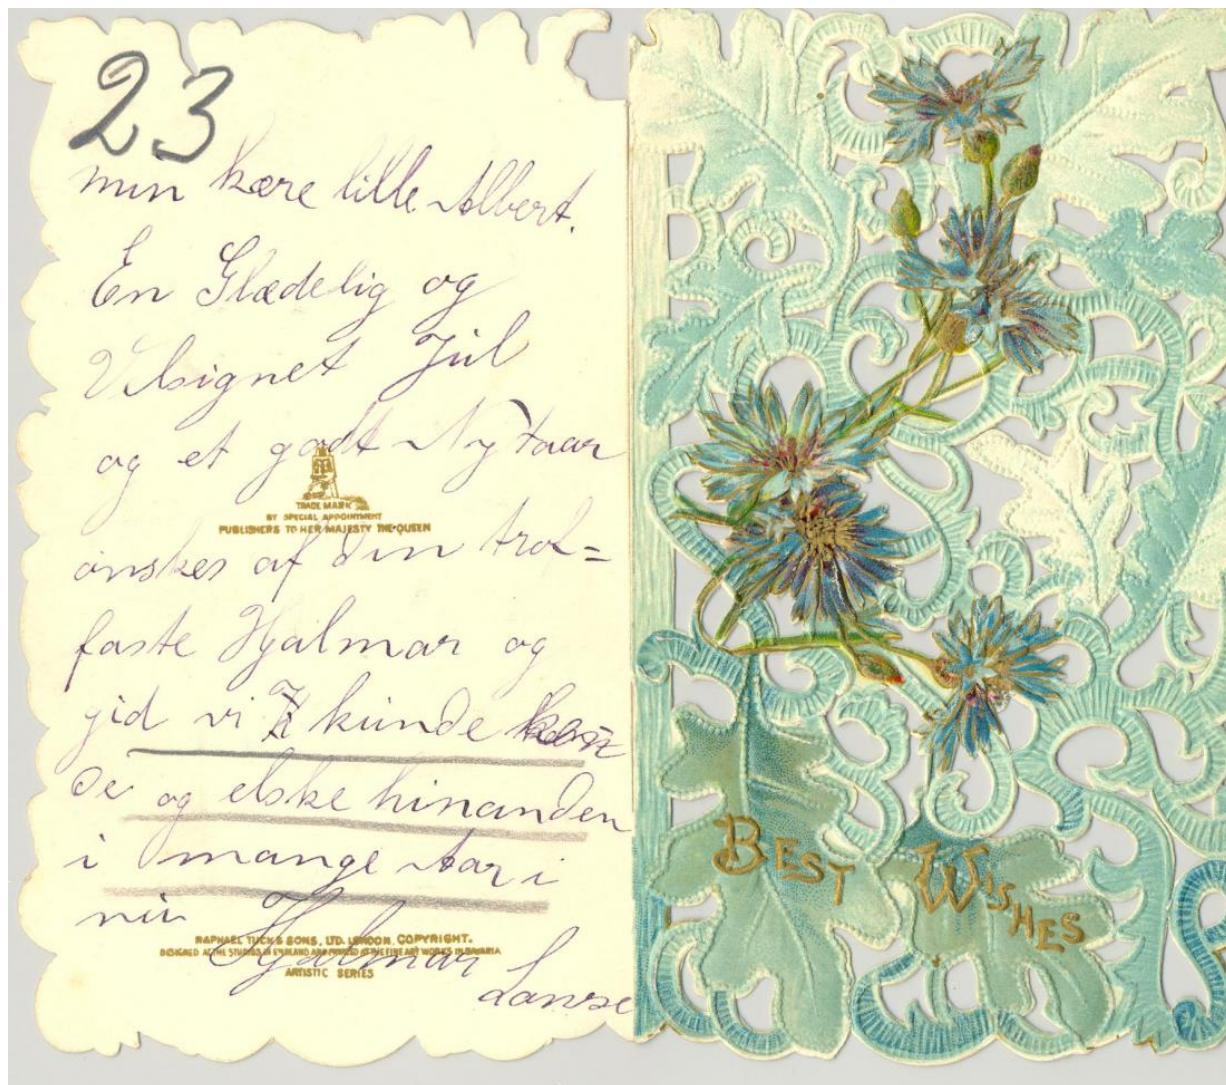 23
min kære lille Albert.
En Glædelig og
Velsignet Jul
og et godt Nytaar
TRADE MARK
BY SPECIAL APPOINTMENT
PUBLISHERS TO HER MAJESTY THE QUEEN
ønskes af din trof=
faste Hjalmar og
gid vi kunde
og elske hinanden
i mange Aar i
Hjalmar
RAPHAEL TUCK & SONS, LTD. LONDON. COPYRIGHT.
DESIGNED AT THE STUDIOS IN ENGLAND AND PRINTED AT THE FINE ART WORKS IN BAVARIA
ARTISTIC SERIES
BEST WISHES